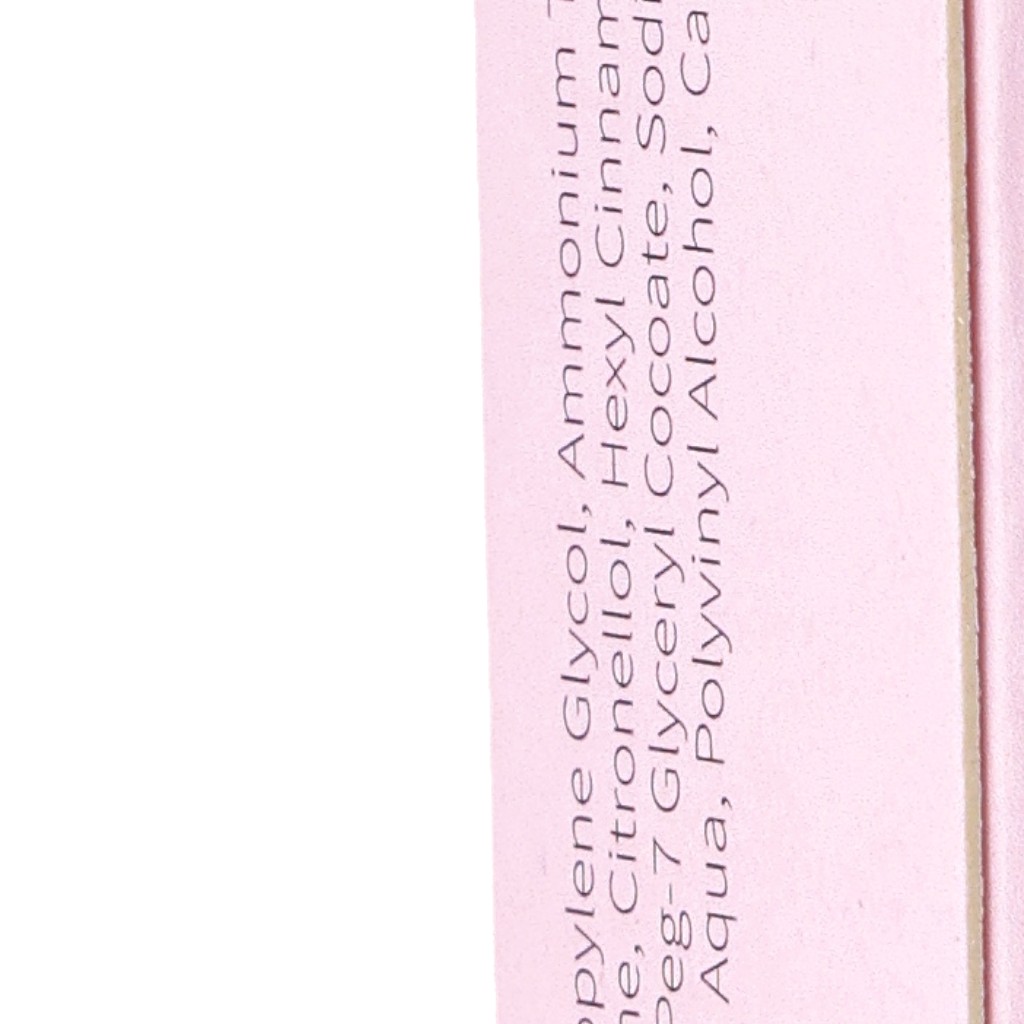 pylene Glycol, Ammonium
ne, Citronellol, Hexyl Cinnam
Peg-7 Glyceryl Cocoate, Sodi
Aqua, Polyvinyl Alcohol, Ca